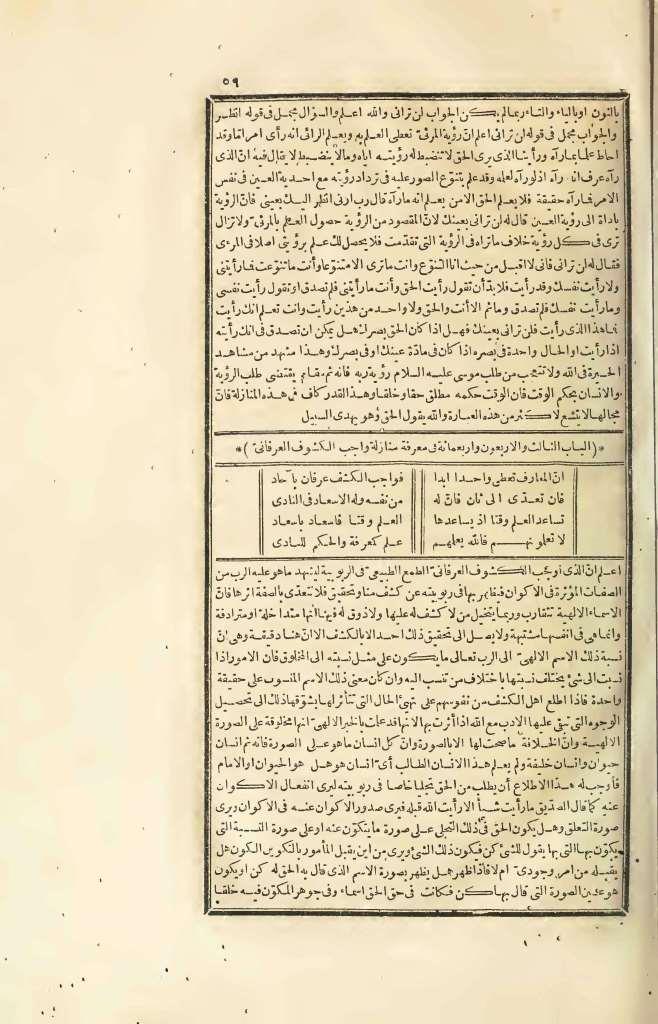 ٥٩
بالنون اوبالياء والتاء ربما لم يكن الجواب لن ترانى والله اعلم والسؤال مجمل فى قوله انظر
والجواب مجمل فى قوله لن ترانى اعلم ان رؤية المرئى تعطى العلم به ويعلم الرائى انه رأى امرا ما وقد
احاط علما بما رآه ورأينا الذى يرى الحق لا تنضبط له رؤيته اياه وما لا ينضبط لا يقال فيه ان الذى
رآه عرف انه رآه اذ لو رآه لعلمه وقد علم بتنوع الصور عليه فى ترداد رؤيته مع احدية العين فى نفس
الامر فما رآه حقيقة فلا يعلم الحق الا من يعلم انه ما رآه قال رب ارنى انظر اليك بعينى فان الرؤية
باداة الى رؤية العين قال له لن ترانى بعينك لان المقصود من الرؤية حصول العلم بالمرئى ولا تزال
ترى فى كل رؤية خلاف ما تراه فى الرؤية التى تقدمت فلا يحصل لك علم برؤيتى اصلا فى المرءى
فقال له لن ترانى فانى لا اقبل من حيث انا التنوع وانت ما ترى الا متنوعا وأنت ما تنوعت فما رأيتنى
ولا رأيت نفسك وقد رأيت فلا بد أن تقول رأيت الحق وأنت ما رأيتنى فلم تصدق او تقول رأيت نفسى
وما رأيت نفسك فلم تصدق وما ثم الا أنت والحق ولا واحد من هذين رأيت وانت تعلم انك رأيت
فما هذا الذى رأيت فلن ترانى بعينك فهل اذا كان الحق بصرك هل يمكن ان تصدق فى انك رأيته
اذا رأيت او الحال واحدة فى بصره اذا كان فى مادة عينك او فى بصرك وهذا مشهد من مشاهد
الحيرة فى الله ولا تتعجب من طلب موسى عليه السلام رؤية ربه فانه ثم مقام يقتضى طلب الرؤية
والانسان بحكم الوقت فان الوقت حكمه مطلق حقا وخلقا وهذا القدر كاف فى هذه المنازلة فان
مجالها لا يتسع لاكثر من هذه العبارة والله يقول الحق وهو يهدى السبيل
*(الباب الثالث والاربعون واربعمائة فى معرفة منازلة واجب الكشوف العرفانى)*
ان المعارف تعطى واحدا ابدا فواجب الكشف عرفان بآحاد
فان تعدى الى ثان فان له من نفسه وله الاسعاد فى النادى
تساعد العلم وقتا اذ يساعدها العلم وقتا فاسعاد باسعاد
لا تعلمونهم فالله يعلمهم علم كمعرفة والحكم للبادى
اعلم ان الذى اوجب الكشوف العرفانى الطمع الطبيعى فى الربوبية ليشهد ما هو عليه الرب من
الصفات المؤثرة فى الاكوان فيظهر بها فى ربوبيته عن كشف منا وتحقيق فلا نتعدى بالصفة اثرها فان
الاسماء الالهية تتقارب وربما يتخيل من لا كشف له عليها ولا ذوق له فيها انها متداخلة او مترادفة
وانما هى فى انفسها مشتبهة ولا يصل الى تحقيق ذلك احد الا بالكشف الا ان هنا دقيقة وهى ان
نسبة ذلك الاسم الالهى الى الرب تعالى ما يكون على مثل نسبته الى المخلوق فان الامور اذا
نسبت الى شئ يختلف نسبتها باختلاف من تنسب اليه وان كان معنى ذلك الاسم المنسوب على حقيقة
واحدة فاذا اطلع اهل الكشف من نفوسهم على تهيئ الحال التى تتأثر لها يشوقها ذلك الى تحصيل
الوجوه التى تبقى عليها الادب مع الله اذا أثرت بها لانها قد علمت بالخبر الالهى انها مخلوقة على الصورة
الالهية وان الخلافة ما صحت لها الا بالصورة وان كل انسان ما هو على الصورة فانه ثم انسان
حيوان وانسان خليفة ولم يعلم هذا الانسان الطالب أى انسان هو هل هو الحيوان او الامام
فأوجب له هذا الاطلاع أن يطلب من الحق تجليا خاصا فى ربوبيته ليرى انفعال الاكوان
عنه كما قال الصديق ما رأيت شيأ الا رأيت الله قبله فيرى صدور الاكوان عنه فى الاكوان ويرى
صورة التعلق وهل يكون الحق فى ذلك التجلى على صورة ما يتكون عنه او على صورة النسبة التى
يكون بها التى بها يقول للشئ كن فيكون ذلك الشئ ويرى من اين يقبل المأمور بالتكوين الكون هل
يقبله من امر وجودى ام لا فاذا ظهر هل يظهر بصورة الاسم الذى قال به الحق له كن او يكون
هو عين الصورة التى قال بها كن فكانت فى حق الحق اسماء وفى جوهر المكون فيه خلقا